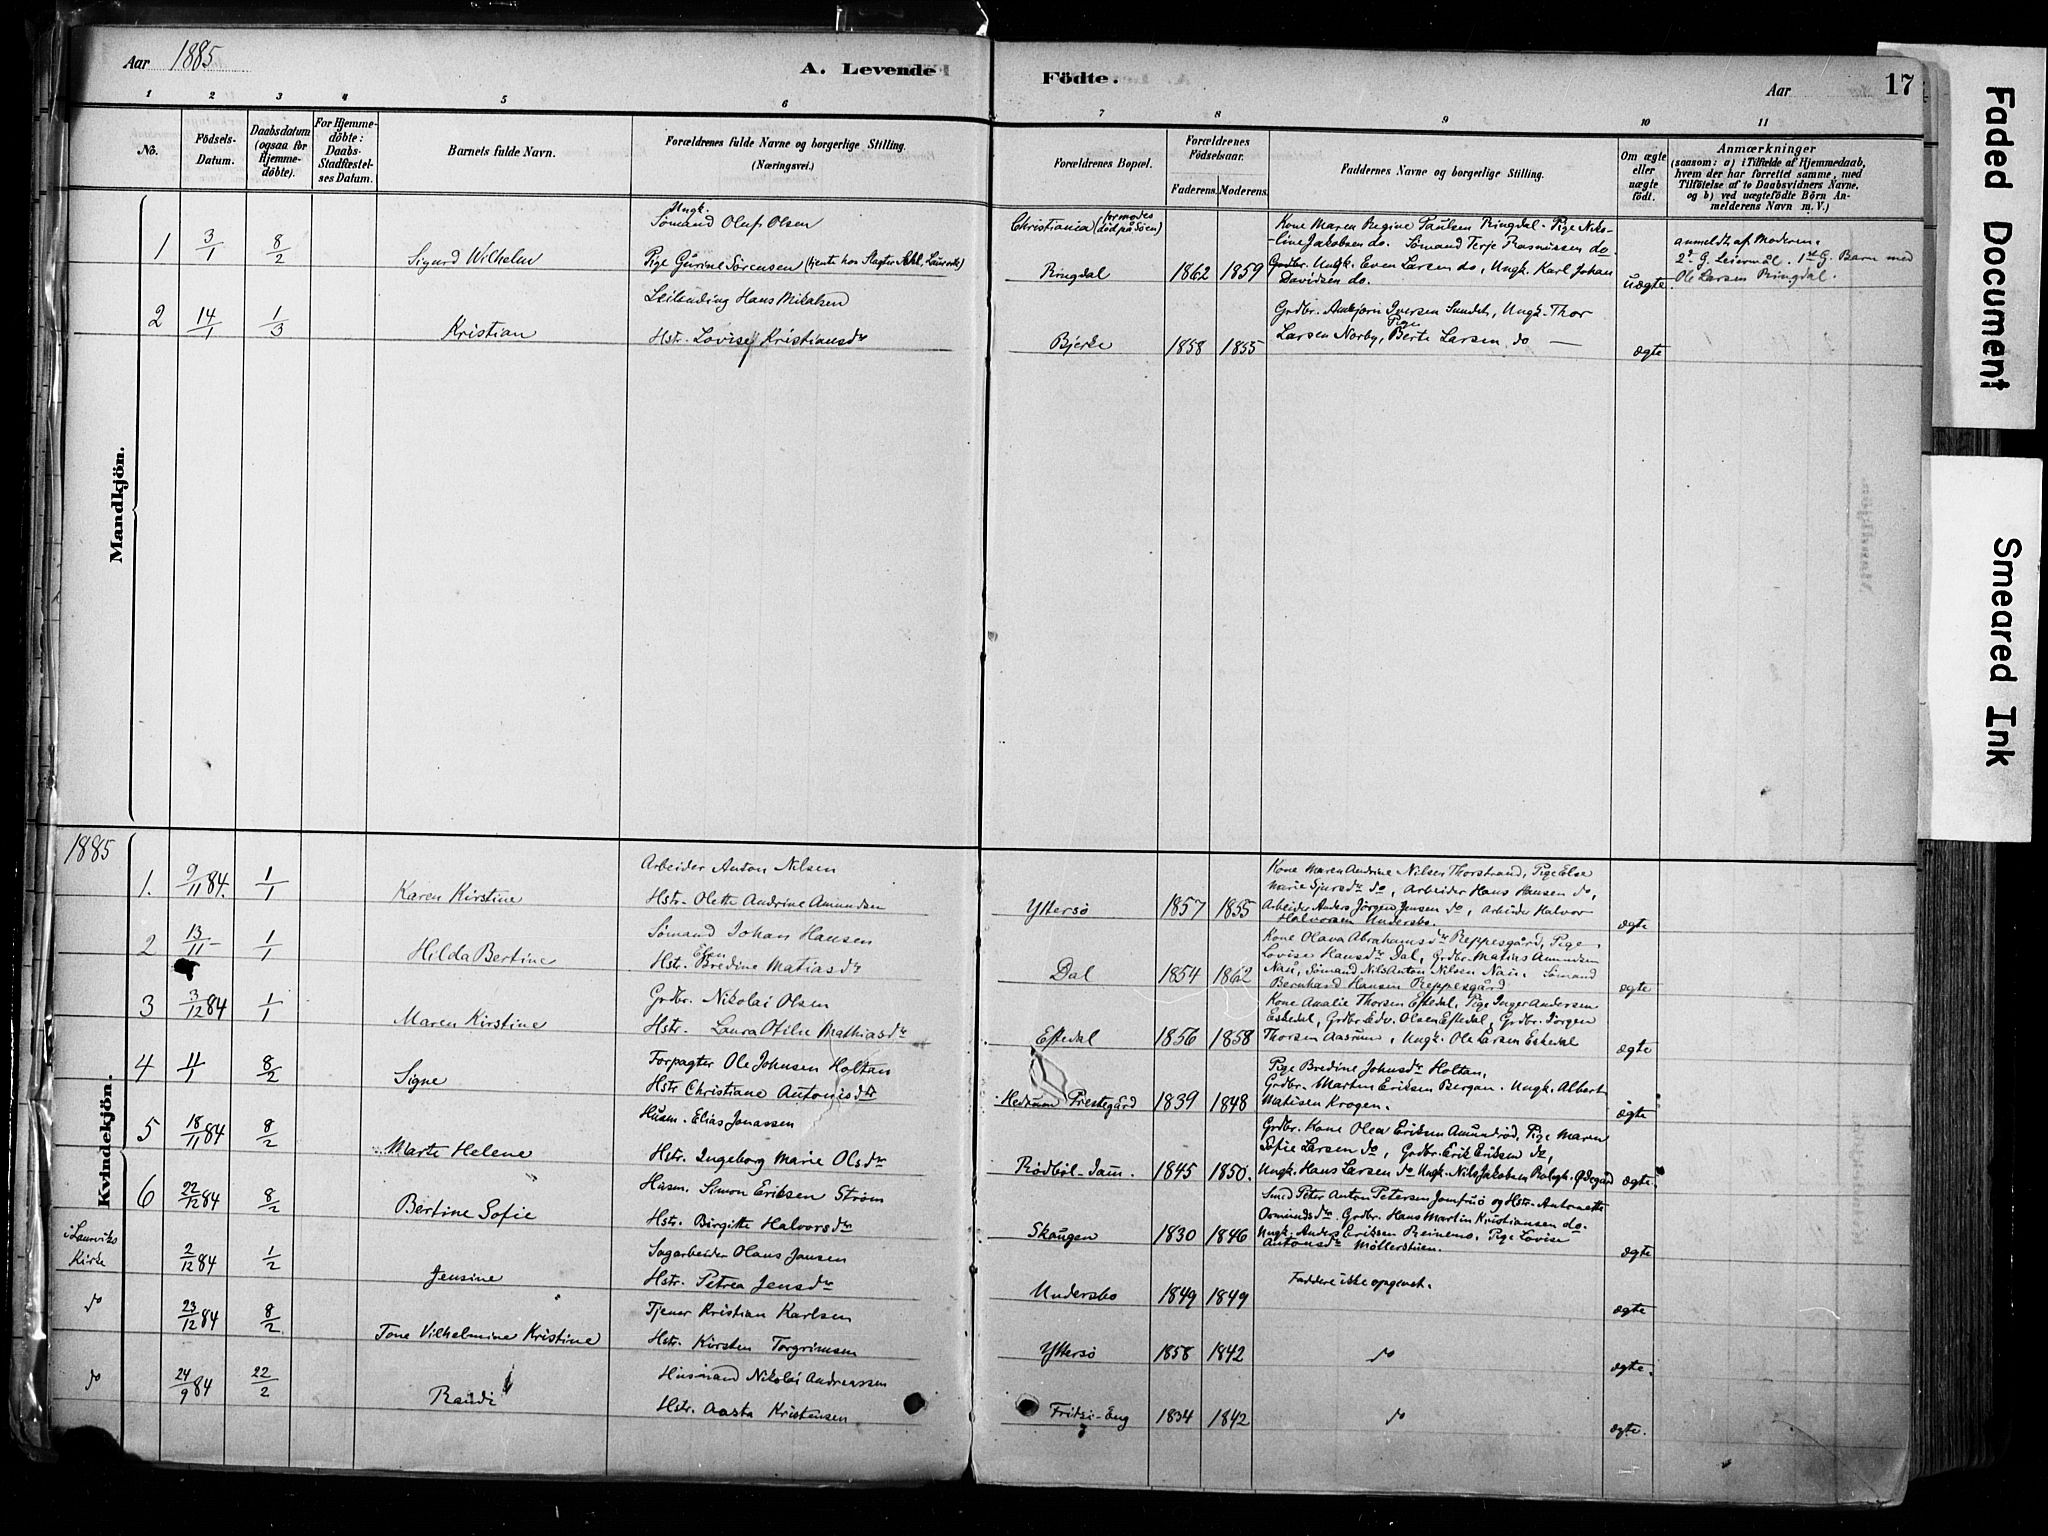 Aar 1885
A. Levende Födte.
Aar
17
1 2 3 4 5 6 7 8 9 10 11
No.
Födsels-Datum.
Daabsdatum (ogsaa for Hjemme-döbte).
For Hjemme-döbte: Daabs-Stadfæstel-ses Datum.
Barnets fulde Navn.
Forældrenes fulde Navne og borgerlige Stilling.
(Næringsvei.)
Forældrenes Bopæl.
Forældrenes Födselsaar.
Faderens. Moderens.
Faddernes Navne og borgerlige Stilling.
Om ægte eller uægte födt.
Anmærkninger
(saasom: a) i Tilfælde af Hjemmedaab,
hvem der har forrettet samme, med
Tilföielse af to Daabsvidners Navne,
og b) ved uægtefödte Börn An-
melderens Navn m. V.)
Mandkjön.
1 3/1 8/2 Sigurd Wilhelm
Ungk.
Sömand Oluf Olsen
Pige Gurine Sörensen (tjente hos Slagter Ahl, Laurvik)
Christiania (formodes död på Söen)
Ringdal 1862 1859
Kone Maren Regine Paulsen Ringdal. Pige Niko-
-line Jakobsen do. Sömand Terje Rasmussen do
Grdbr. Ungk. Even Larsen do, Ungk. Karl Johan
Davidsen do.
uægte
anmeldt af Moderen.
2d G. Leiermål. 1st G. Barn med
Ole Larsen Ringdal.
2 14/1 1/3 Kristian
Leilending Hans Mikalsen
Hstr. Lovise Kristiansdr
Bjerke 1858 1855
Grdbr. Anbjörn Iversen Sundet, Ungk. Thor
Larsen Norby, Pige Berte Larsen do —
ægte
Kvindekjön.
1885
1. 9/11 84. 1/1 Karen Kirstine
Arbeider Anton Nilsen
Hstr. Olette Andrine Amundsen
Yttersö 1857 1855
Kone Maren Andrine Nilsen Thorstrand, Pige Else
Marie Sjursdr do, Arbeider Hans Hansen do,
Arbeider Anders Jörgen Jensen do, Arbeider Halvor
Halvorsen Undersbo.
ægte
2 13/11 - 1/1 Hilda Bertine
Sömand Johan Hansen
Hstr. Elen Bredine Matiasdr
Dal 1854 1862
Kone Olava Abrahamsdr Reppesgård, Pige
Lovise Hansdr Dal, Grdbr. Matias Amundsen
Nau, Sömand Nils Anton Nilsen Nau. Sömand
Bernhard Hansen Reppesgård
ægte
3 3/12 84 1/1 Maren Kirstine
Grdbr. Nikolai Olsen
Hstr. Laura Otilie Mathiasdr
Eftedal 1856 1858
Kone Amalie Thorsen Eftedal, Pige Inger Andersen
Eskedal, Grdbr Edv. Olsen Eftedal, Grdbr. Jörgen
Thorsen Aasrum, Ungk. Ole Larsen Eskedal
ægte
4 4/1 8/2 Signe
Forpagter Ole Johnsen Holtan
Hstr Christiane Antonisdr
Hedrum Prestegård 1839 1848
Pige Bredine Johnsdr Holtan,
Grdbr. Martin Eriksen Bergan. Ungk. Albert
Matisen Krogen.
ægte
5 18/11 84 8/2 Marte Helene
Husm. Elias Jonassen
Hstr. Ingeborg Marie Olsdr
Rödböl-Jam. 1845 1850.
Grdbr. Kone Olea Eriksen Amundröd, Pige Maren
Sofie Larsen do, Grdbr. Erik Eriksen do,
Ungk. Hans Larsen do Ungk. Nils Jakobsen Ödegård
ægte.
6 22/12 84 8/2 Bertine Sofie
Husm. Simon Eriksen Ström
Hstr. Birgitte Halvorsdr
Skaugen 1830 1846
Smed Peter Anton Petersen Jomfruö og Hstr. Antonette
Osmundsdr. Grdbr. Hans Martin Kristiansen do.
Ungk. Anders Eriksen Reinemo. Pige Lovise
Antonsdr Möllerstuen.
ægte
i Laurviks Kirke
2/12 84 1/2 Jensine
Sagarbeider Olaus Jansen
Hstr. Petrea Jensdr
Undersbo 1849 1849
Faddere ikke opgivet.
ægte
do
23/12 84 8/2 Tone Vilhelmine Kristine
Tjener Kristian Karlsen
Hstr. Kirsten Torgrimsen
Yttersö 1858 1842
do
ægte.
do
24/9 84 22/2 Randi
Husmand Nikolai Andreassen
Hstr. Aasta Kristensen
Fritzö-Eng 1834 1842
do
ægte.
Faded Document
Smeared Ink